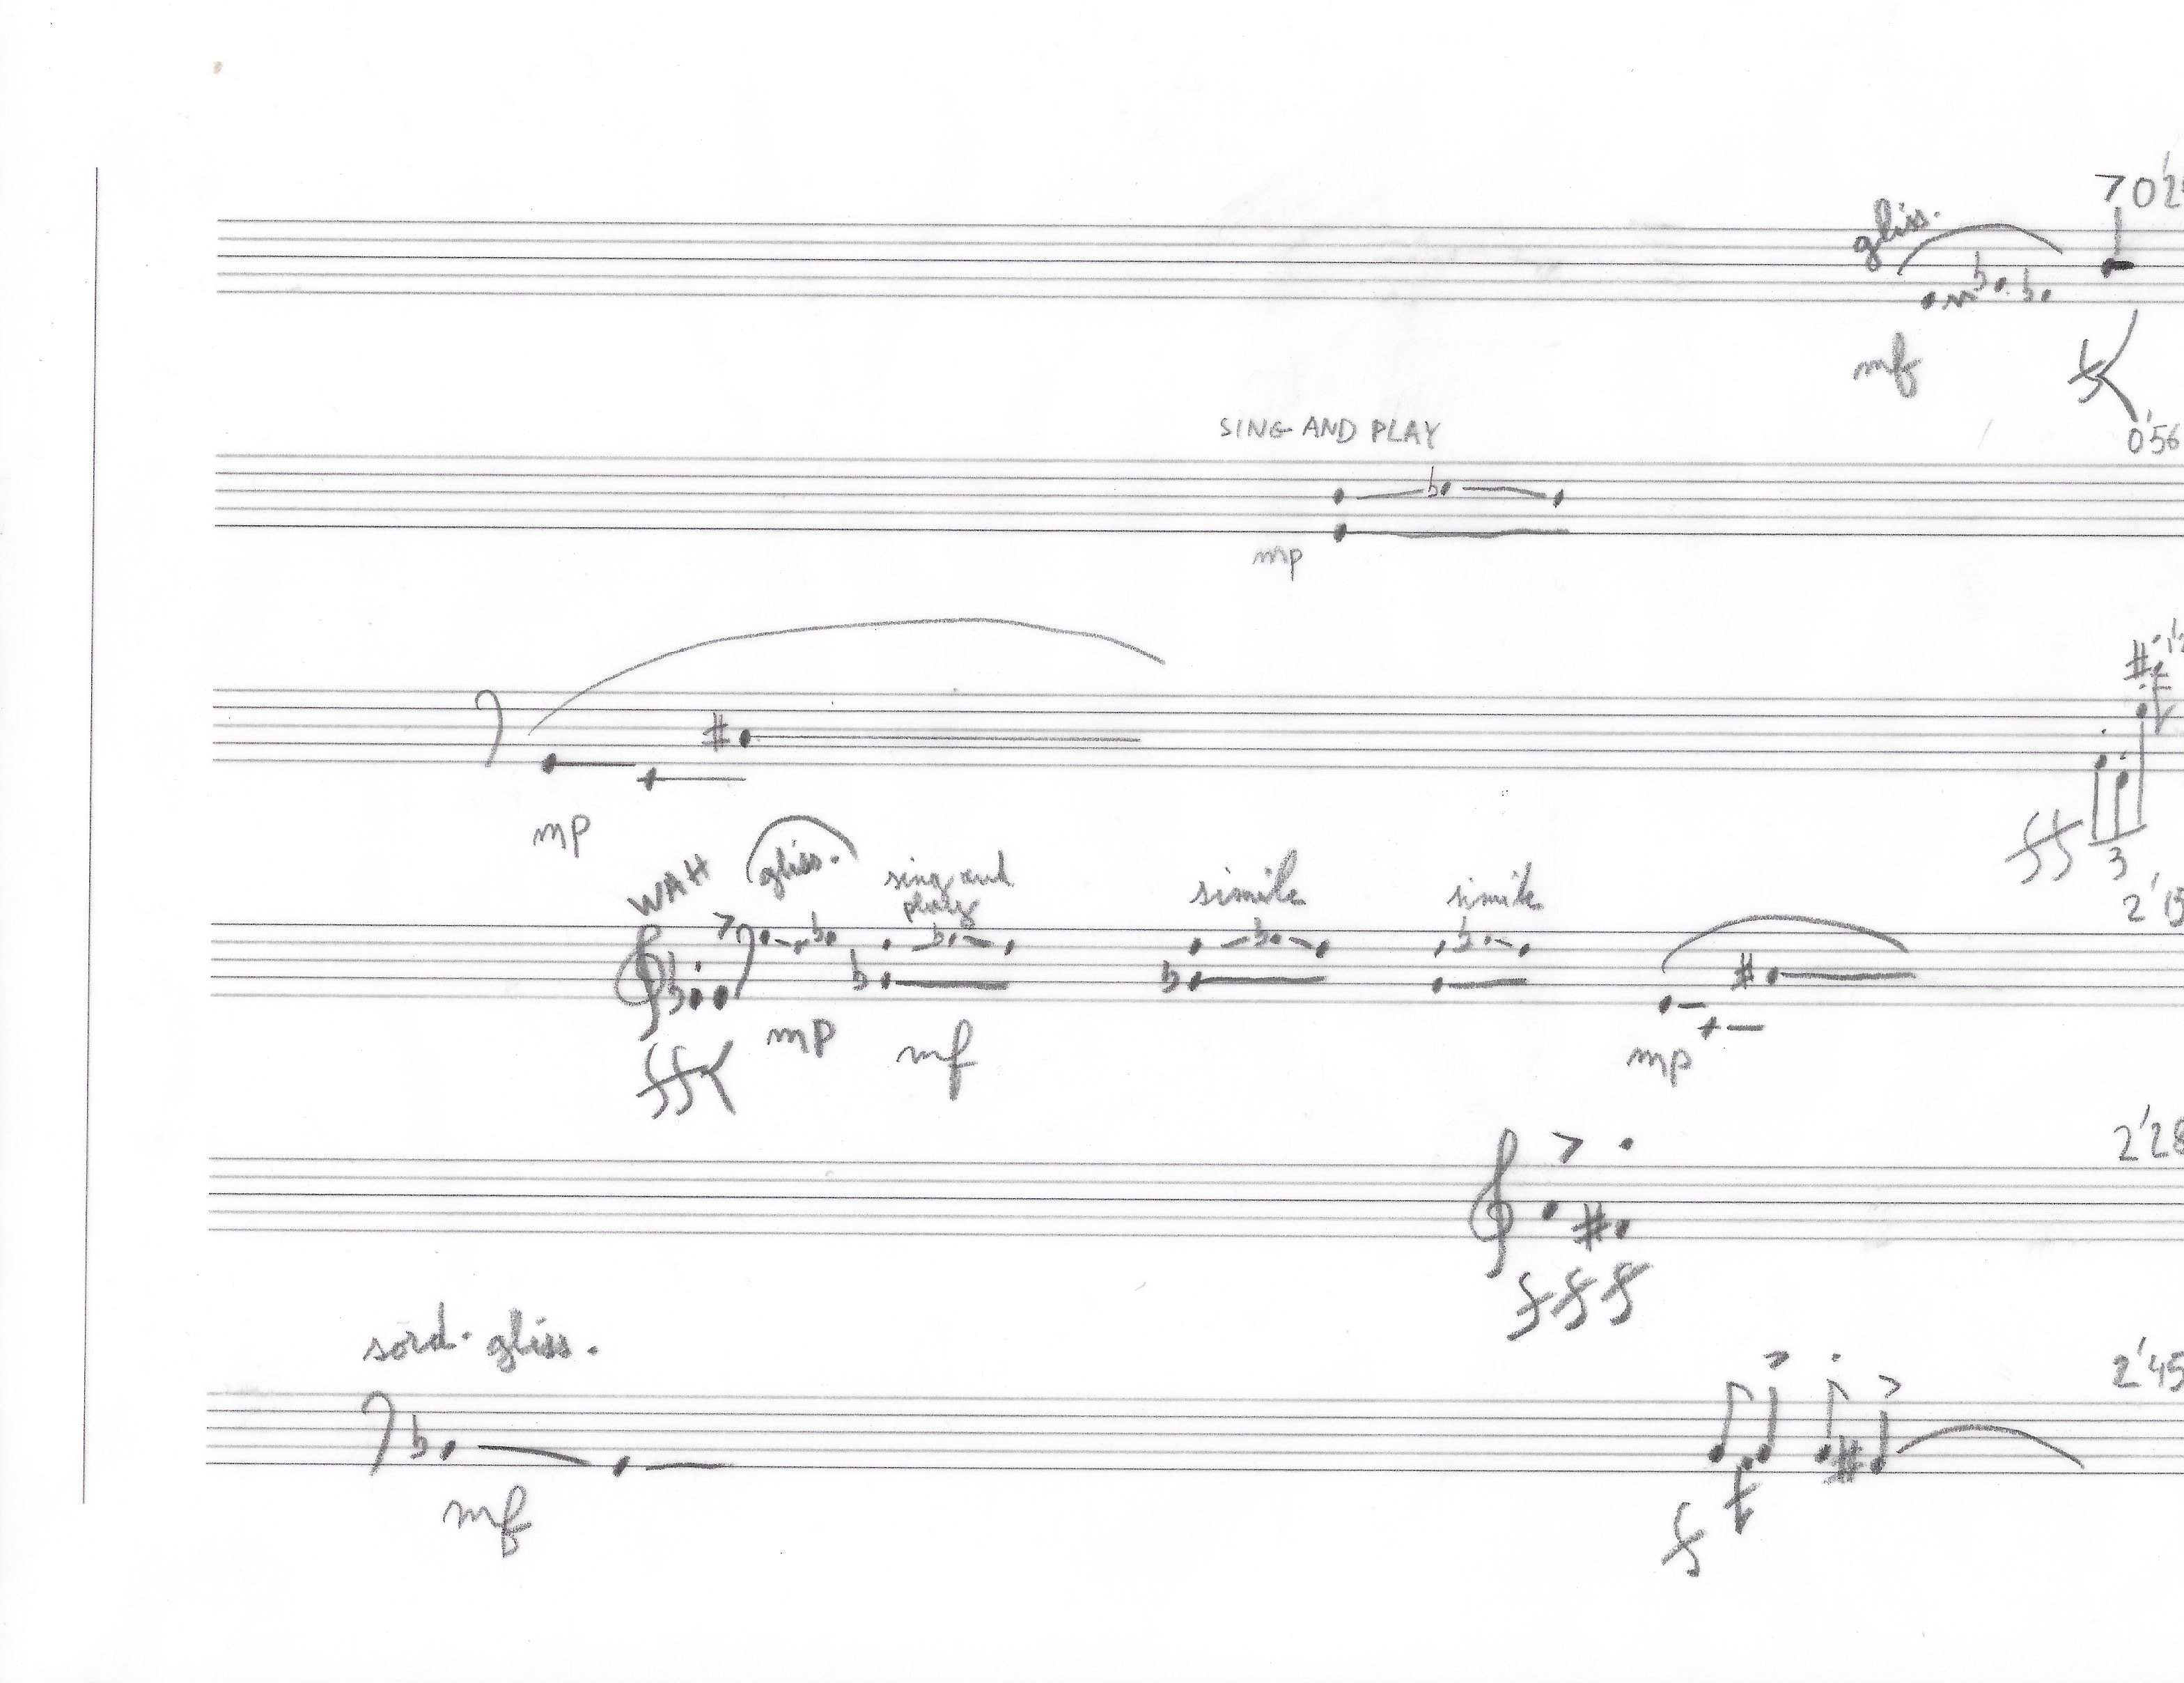 gliss.
mf
f
SING AND PLAY
0'56
mp
mp
ff
3
WAH
gliss.
sing and
play
simile
simile
ff
mp
mf
mp
2'28
fff
sord. gliss.
2'45
mf
f